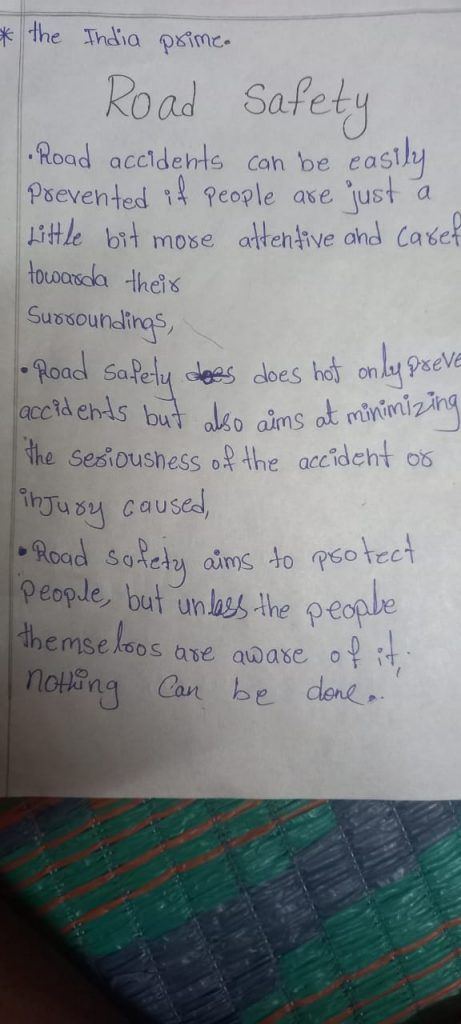 * the India prime.
Road Safety
•Road accidents can be easily
Prevented if People are just a
Little bit more attentive and Caref
towarda their
Surroundings,
•Road Safety does does not only preve
accidents but also aims at minimizing
the seriousness of the accident or
injury caused,
•Road safety aims to protect
People, but unless the people
themseloos are aware of it,
nothing Can be done..